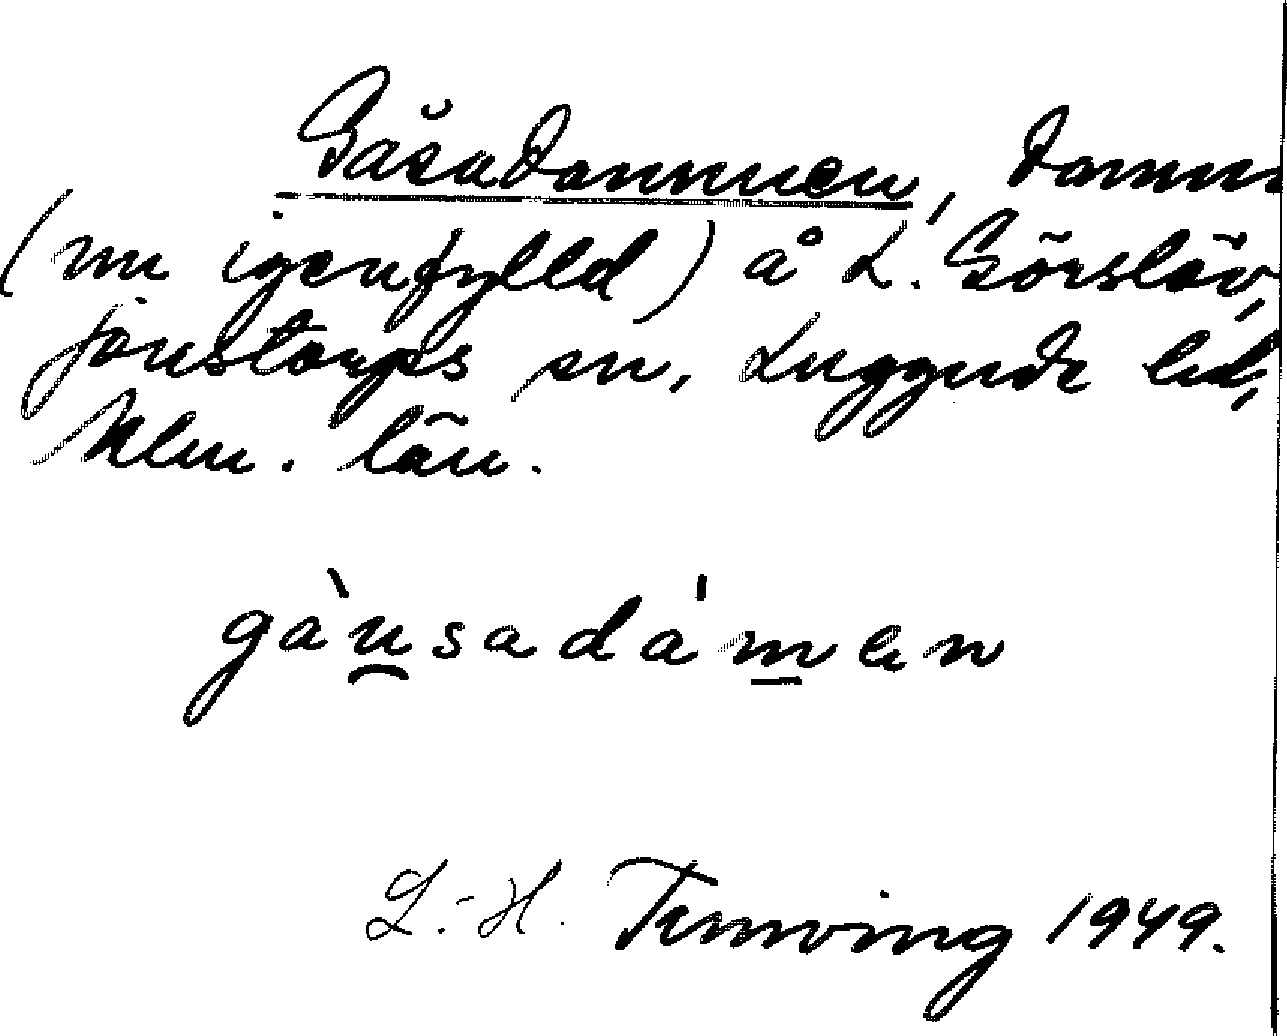 Gåsadammen, damm
(nu igenfylld) å L. Görslöv,
Jonstorps sn, Luggude hd,
Mlm. län.
gàu̯sadám̲en
L.-H. Tennving 1949.